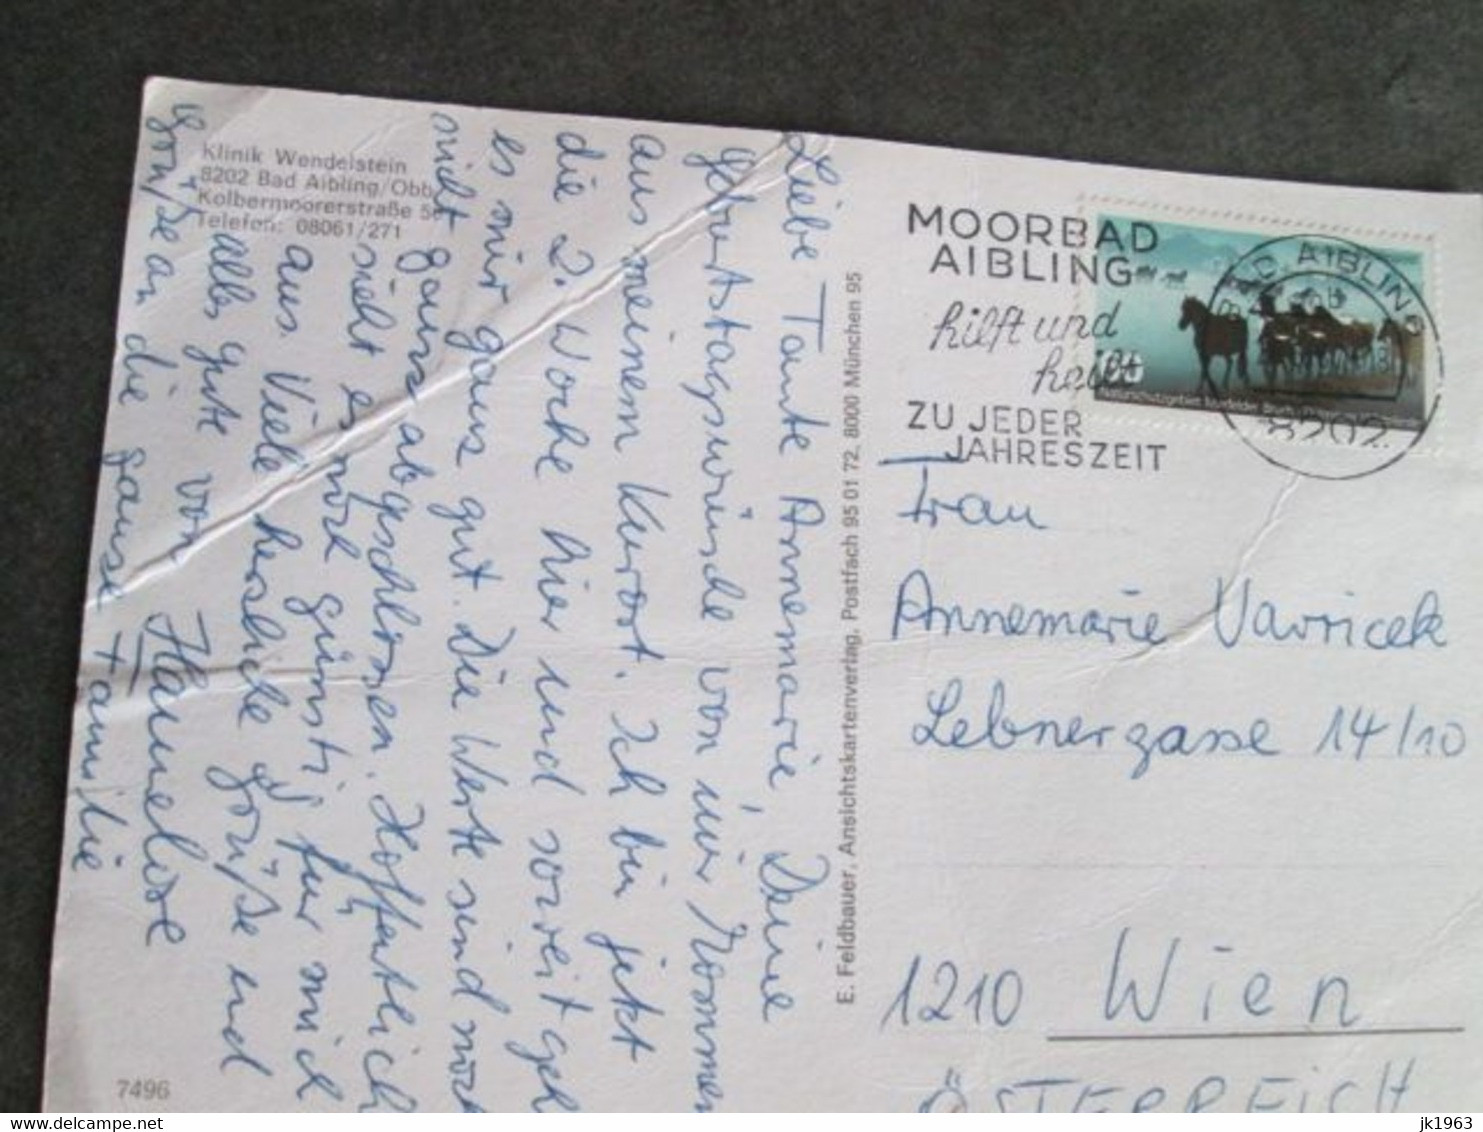 Klinik Wendelstein
8202 Bad Aibling/Obb.
Kolbermoorerstraße 56
Telefon: 08061/271
Liebe Tante Annemarie, Deine
Geburtstagswünsche von mir kommen
aus meinem Kurort. Ich bin jetzt
die 2. Woche hier und soweit geht
es mir ganz gut. Die Werte sind noch
nicht ganz abgeschlossen. Hoffentlich
sieht es noch günstig für mich
aus. Viele herzliche Grüße und
alles gute von Hannelore
an die ganze Familie
7496
E. Feldbauer, Ansichtskartenverlag, Postfach 95 01 72, 8000 München 95
MOORBAD
AIBLING
hilft und
heilt
ZU JEDER
JAHRESZEIT
BAD AIBLING
8202
Frau
Annemarie Varricek
Lebnergasse 14/10
1210 Wien
ÖSTERREICH
jk1963